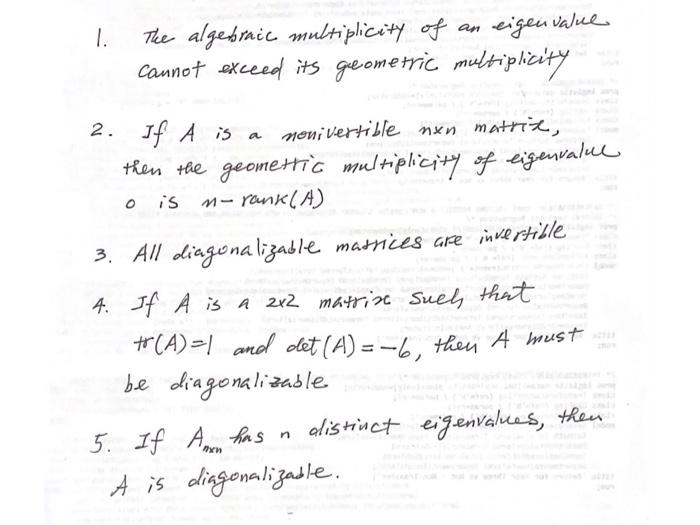 1. The algebraic multiplicity of an eigenvalue
cannot exceed its geometric multiplicity
2. If A is a nonivertible nxn matrix,
then the geometric multiplicity of eigenvalue
0 is n-rank(A)
3. All diagonalizable matrices are invertible
4. If A is a 2x2 matrix such that
tr(A)=1 and det(A)=-6, then A must
be diagonalizable
5. If Anxn has n distinct eigenvalues, then
A is diagonalizable.